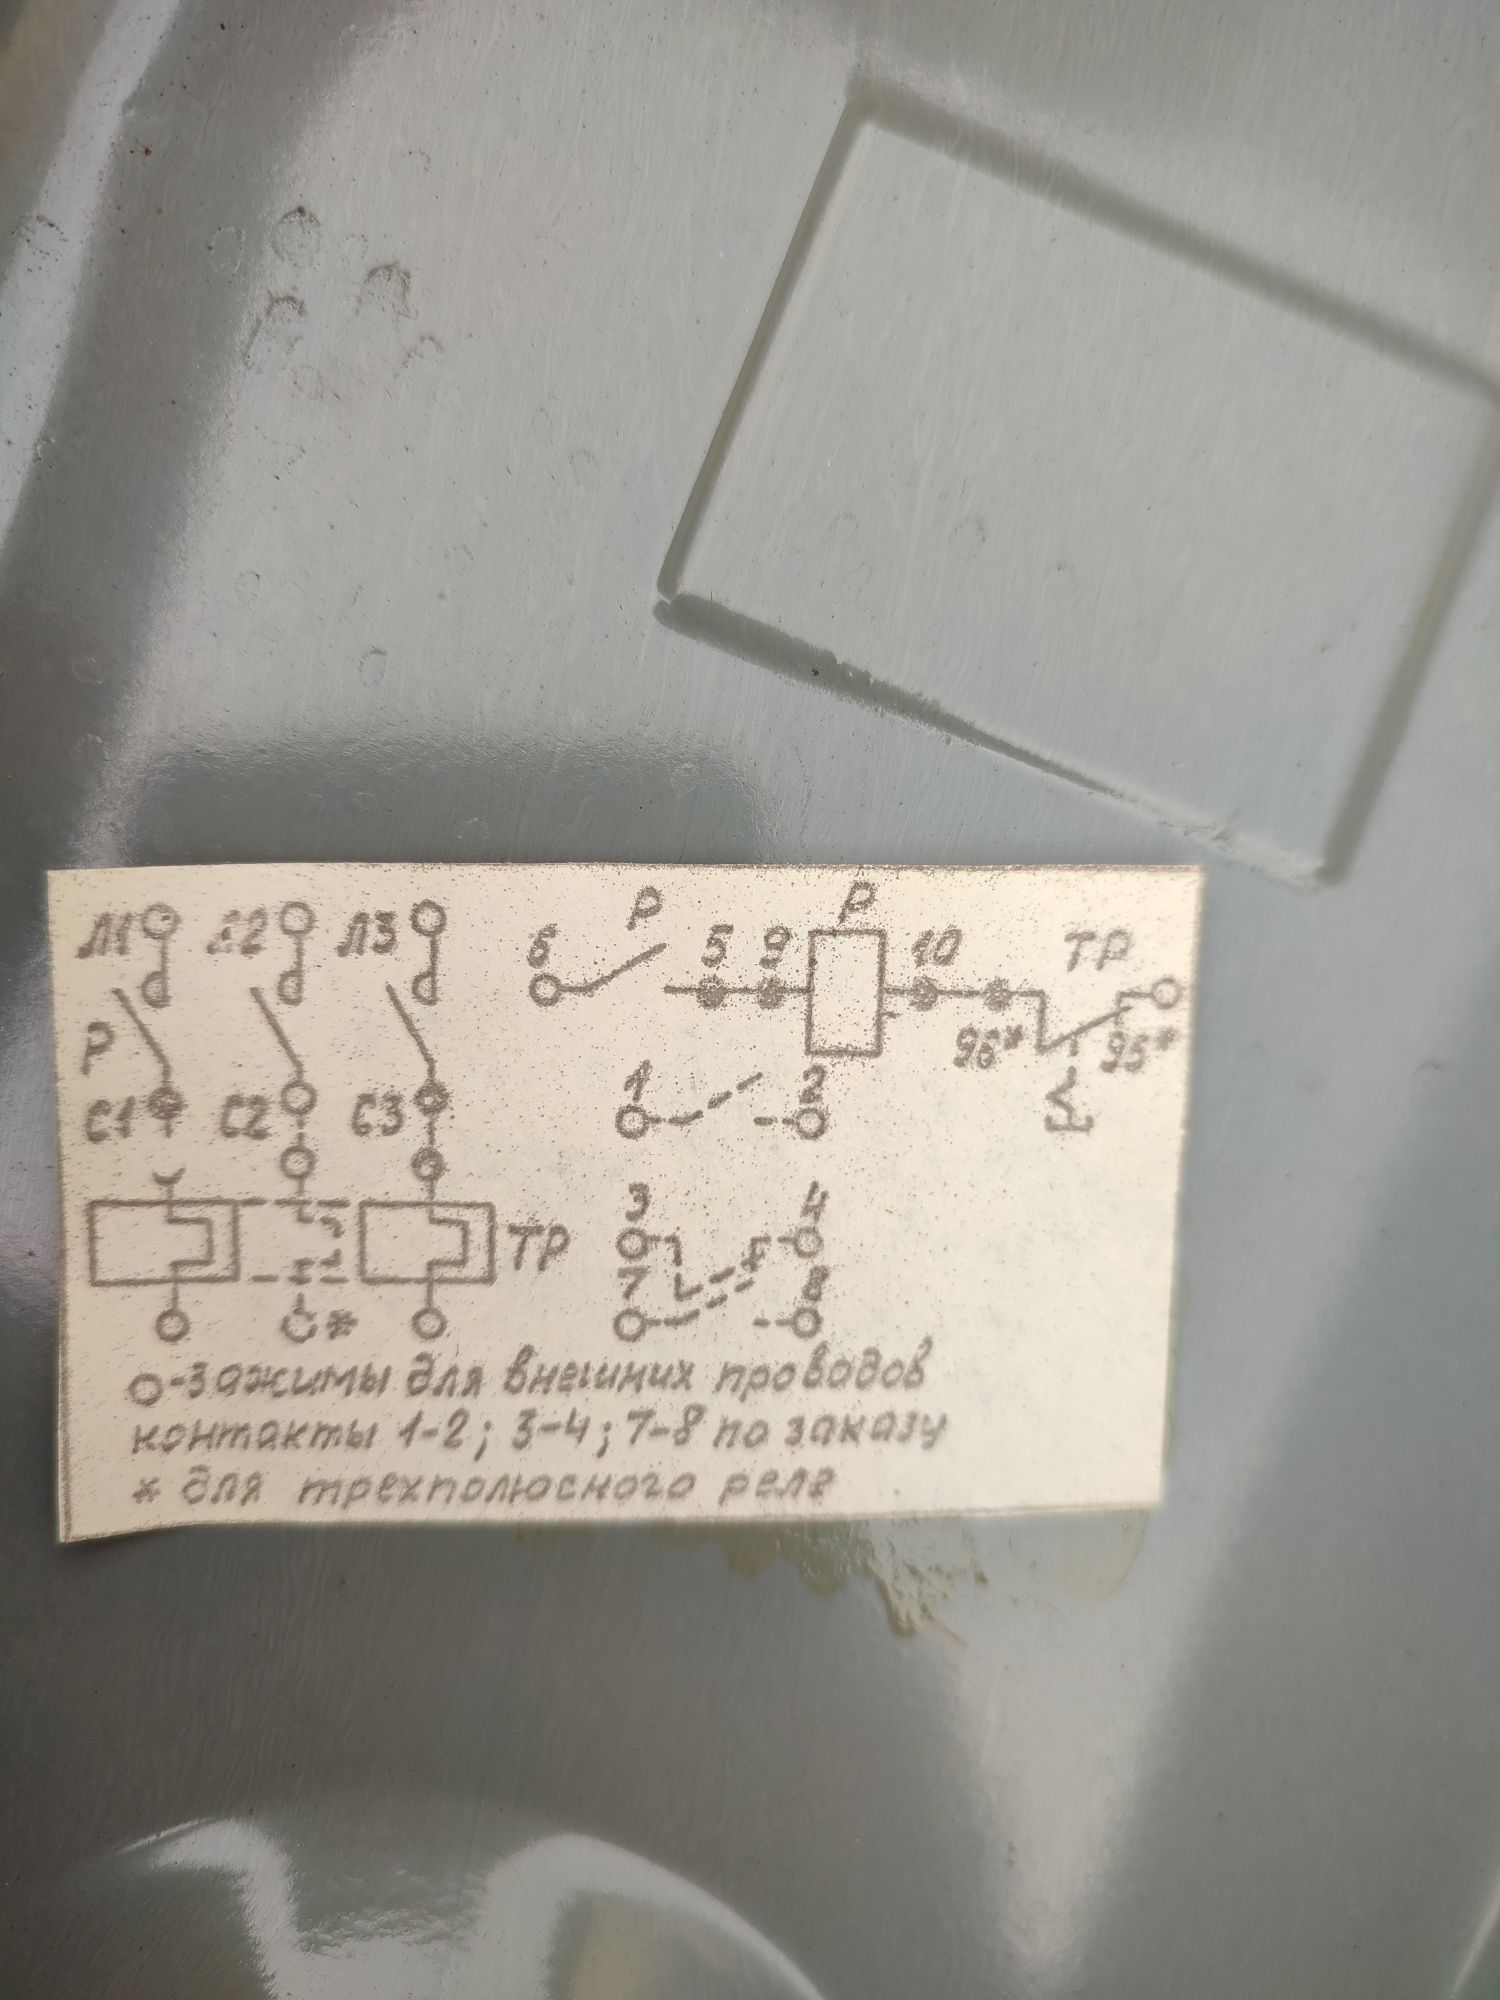 Л1 Л2 Л3 6 Р 5 9 Р 10 ТР
Р 96* 95*
С1 С2 С3 1 2
3 4
ТР
7 8
*
О-зажимы для внешних проводов
контакты 1-2; 3-4; 7-8 по заказу
* для трехполюсного реле